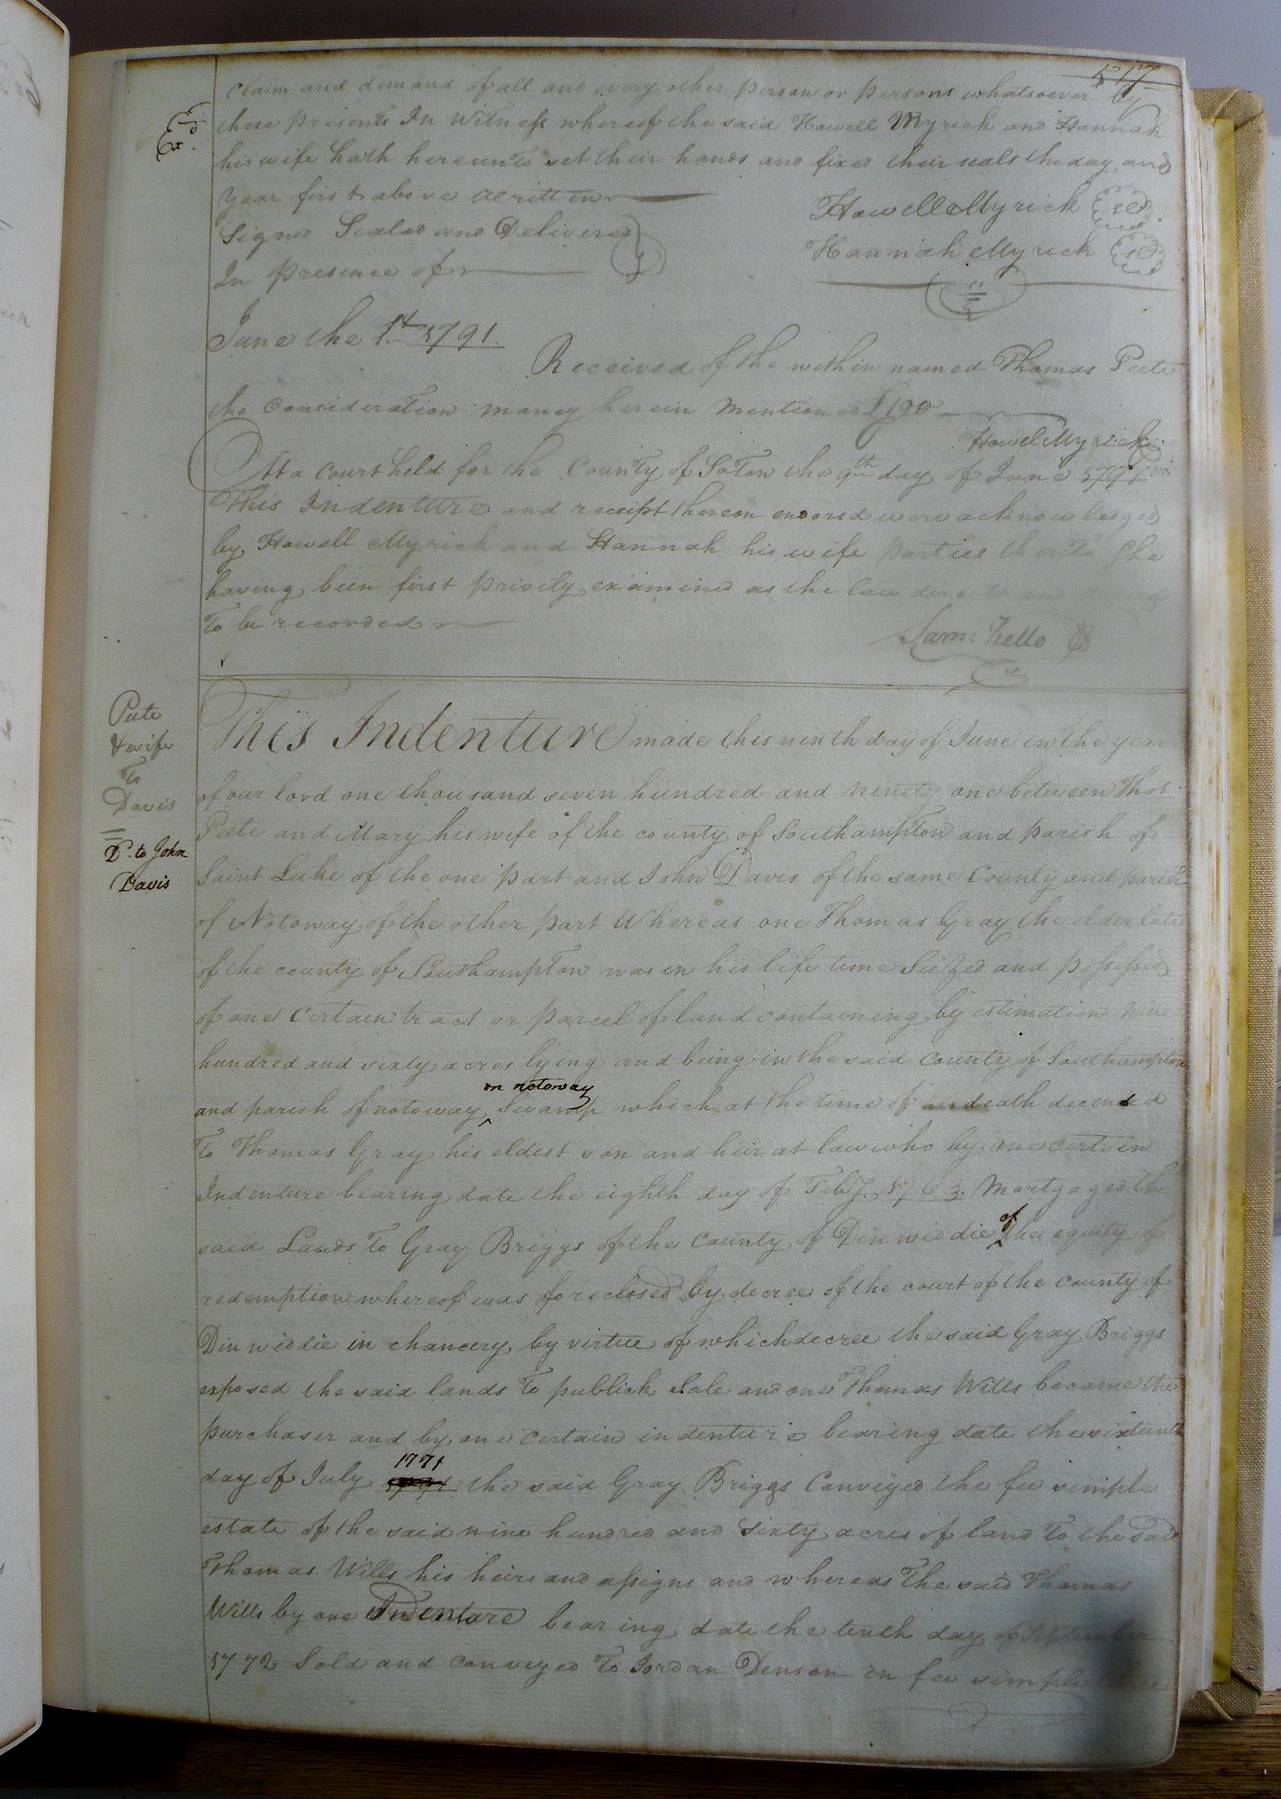 517
claim and demand of all and every other person or persons whatsoever by
these presents In Witness whereof the said Howell Myrick and Hannah
Ex.d
his wife hath hereunto set their hands and fixed their seals the day and
year first above written
Howell Myrick
Signed Sealed and Delivered
Hannah Myrick
In presence of
June the 1st 1791.
Received of the within named Thomas Peete
the consideration money herein mentioned £190
Howel Myrick
At a Court held for the County of Soton the 9th day of June 1791
This Indenture and receipt thereon endorsed were acknowledged
by Howell Myrick and Hannah his wife parties thereto she
having been first privily examined as the law directs and
To be recorded
Sam: Kello
Peete
& wife
To
Davis
D. to John
Davis
This Indenture made this ninth day of June in the year
of our lord one thousand seven hundred and ninety one between Thos.
Peete and Mary his wife of the county of Southampton and parish of
Saint Luke of the one part and John Davis of the same County and parish
of Notoway of the other part Whereas one Thomas Gray the elder late
of the county of Southampton was in his life time Seized and possessed
of one certain tract or parcel of land containing by estimation nine
hundred and sixty acres lying and being in the said County of Southampton
on notoway
and parish of notoway ^ Swamp which at the time of death decended
To Thomas Gray his eldest son and heir at law who by one certain
Indenture bearing date the eighth day of Feby. 1763. Mortgaged the
said Lands To Gray Briggs of the County of Dinwiddie ^of the equity of
redemption whereof was foreclosed by decree of the court of the County of
Dinwiddie in chancery by virtue of which decree the said Gray Briggs
exposed the said lands To publick Sale and one Thomas Wills became the
purchaser and by one certain indenture bearing date the sixteenth
1771
day of July the said Gray Briggs Conveyed the fee simple
estate of the said nine hundred and Sixty acres of land To the said
Thomas Wills his heirs and assigns and whereas The said Thomas
Wills by one Indenture bearing date the tenth day of September
1772 Sold and conveyed To Jordan Denson in fee simple